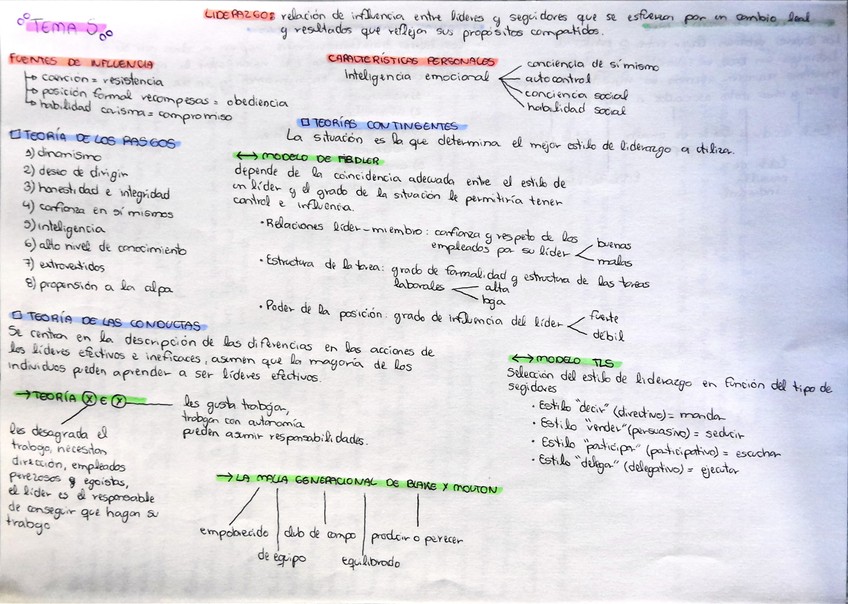 TEMA 5
LIDERAZGO: relación de influencia entre líderes y seguidores que se esfuerzan por un cambio leal
y resultados que reflejan sus propósitos compartidos.
FUENTES DE INFLUENCIA
↳ coerción = resistencia
↳ posición formal recompesas = obediencia
↳ habilidad carisma = compromiso
CARACTERÍSTICAS PERSONALES
Inteligencia emocional
conciencia de sí mismo
autocontrol
conciencia social
habilidad social
TEORÍAS CONTINGENTES
La situación es la que determina el mejor estilo de liderazgo a utiliza.
TEORÍA DE LOS RASGOS
1) dinamismo
2) deseo de dirigir
3) honestidad e integridad
4) confianza en sí mismos
5) inteligencia
6) alto nivel de conocimiento
7) extrovertidos
8) propensión a la culpa
↔ MODELO DE FIEDLER
depende de la coincidencia adecuada entre el estilo de
un líder y el grado de la situación le permitiría tener
control e influencia.
· Relaciones líder-miembro: confianza y respeto de los
empleados por su líder
buenas
malas
· Estructura de la tarea: grado de formalidad y estructura de las tareas
laborales
alta
baja
· Poder de la posición: grado de influencia del líder
fuerte
débil
TEORÍA DE LAS CONDUCTAS
Se centran en la descripción de las diferencias en las acciones de
los líderes efectivos e ineficaces, asumen que la mayoría de los
individuos pueden aprender a ser líderes efectivos.
→ TEORÍA X E Y
les gusta trabajar,
trabajan con autonomía
pueden asumir responsabilidades.
les desagrada el
trabajo, necesitan
dirección, empleados
perezosos y egoístas,
el líder es el responsable
de conseguir que hagan su
trabajo
↔ MODELO TLS
Selección del estilo de liderazgo en función del tipo de
segidores
· Estilo "decir" (directivo) = manda
· Estilo "vender" (persuasivo) = seducir
· Estilo "participar" (participativo) = escuchar
· Estilo "delega" (delegativo) = ejecutar
→ LA MALLA GENERACIONAL DE BLAKE Y MOUTON
empobrecido
de equipo
club de campo
equilibrado
producir o perecer